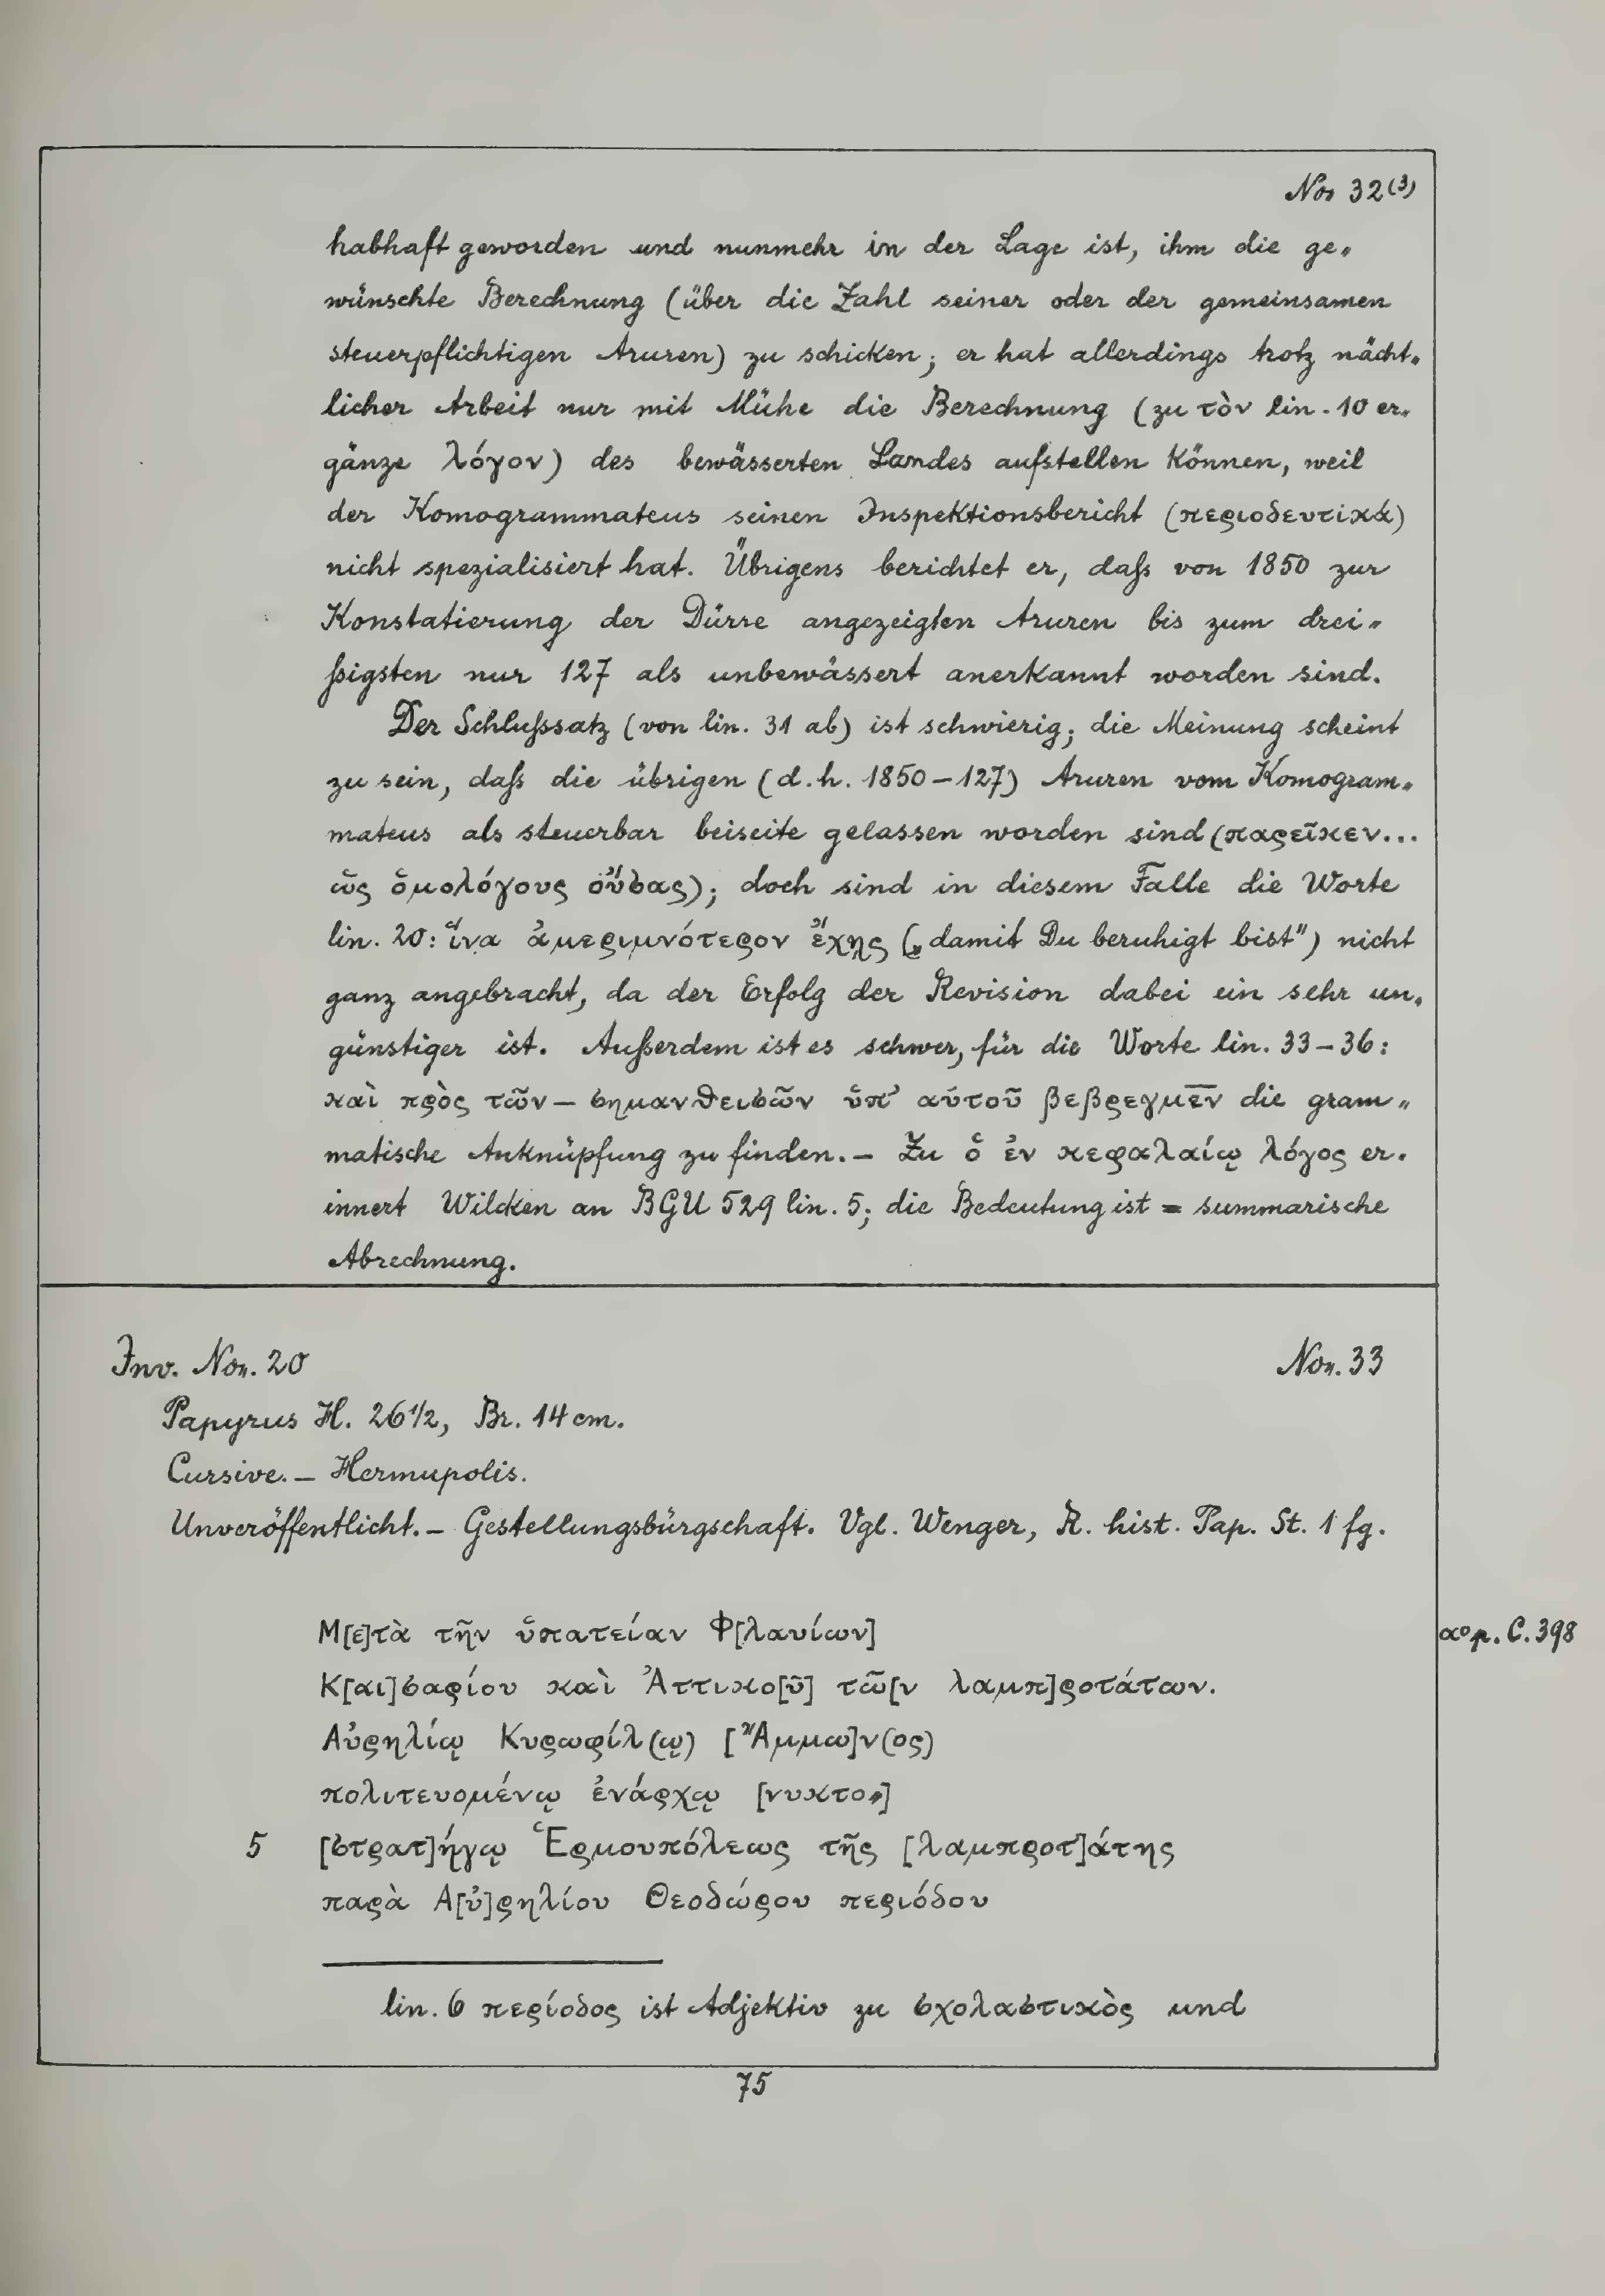 Nor 32(3)
habhaft geworden und nunmehr in der Lage ist, ihm die ge-
wünschte Berechnung (über die Zahl seiner oder der gemeinsamen
steuerpflichtigen Aruren) zu schicken; er hat allerdings trotz nächt-
licher Arbeit nur mit Mühe die Berechnung (zu τὸν lin. 10 er-
gänze λόγον) des bewässerten Landes aufstellen können, weil
der Komogrammateus seinen Inspektionsbericht (περιοδευτικά)
nicht spezialisiert hat. Übrigens berichtet er, daß von 1850 zur
Konstatierung der Dürre angezeigten Aruren bis zum drei-
ßigsten nur 127 als unbewässert anerkannt worden sind.
Der Schlußsatz (von lin. 31 ab) ist schwierig; die Meinung scheint
zu sein, daß die übrigen (d. h. 1850–127) Aruren vom Komogram-
mateus als steuerbar beiseite gelassen worden sind (παρεῖκεν...
ὡς ὁμολόγους οὔσας); doch sind in diesem Falle die Worte
lin. 20: ἵνα ἀμεριμνότερον ἔχῃς („damit Du beruhigt bist") nicht
ganz angebracht, da der Erfolg der Revision dabei ein sehr un-
günstiger ist. Außerdem ist es schwer, für die Worte lin. 33–36:
καὶ πρὸς τῶν – σημανθεισῶν ὑπ' αὐτοῦ βεβρεγμεν̅ die gram-
matische Anknüpfung zu finden. – Zu ὁ ἐν κεφαλαίῳ λόγος er-
innert Wilcken an BGU 529 lin. 5; die Bedeutung ist = summarische
Abrechnung.
Inv. Nor. 20 Nor. 33
Papyrus H. 26 1/2, Br. 14 cm.
Cursive. – Hermupolis.
Unveröffentlicht. – Gestellungsbürgschaft. Vgl. Wenger, R. hist. Pap. St. 1 fg.
Μ[ε]τὰ τῆν ὑπατείαν Φ[λαυίων] aº p. C. 398
Κ[αι]σαρίου καὶ Ἀττικο[ῦ] τῶ[ν λαμπ]ροτάτων.
Αὐρηλίῳ Κυρωφίλ(ῳ) [Ἄμμω]ν(ος)
πολιτευομένῳ ἐνάρχῳ [νυκτο-]
5 [στρατ]ήγῳ Ἑρμουπόλεως τῆς [λαμπροτ]άτης
παρὰ Α[ὐ]ρηλίου Θεοδώρου περιόδου
lin. 6 περίοδος ist Adjektiv zu σχολαστικὸς und
75